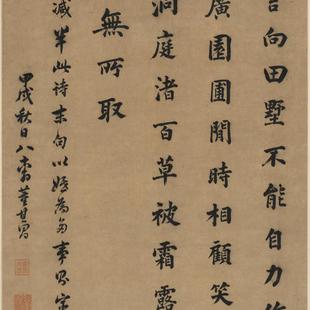 向田墅不能自力
廣園圃閒時相顧笑
洞庭渚百草被霜露
無所取
減半此詩末句以為多事
甲戌秋日八董其昌